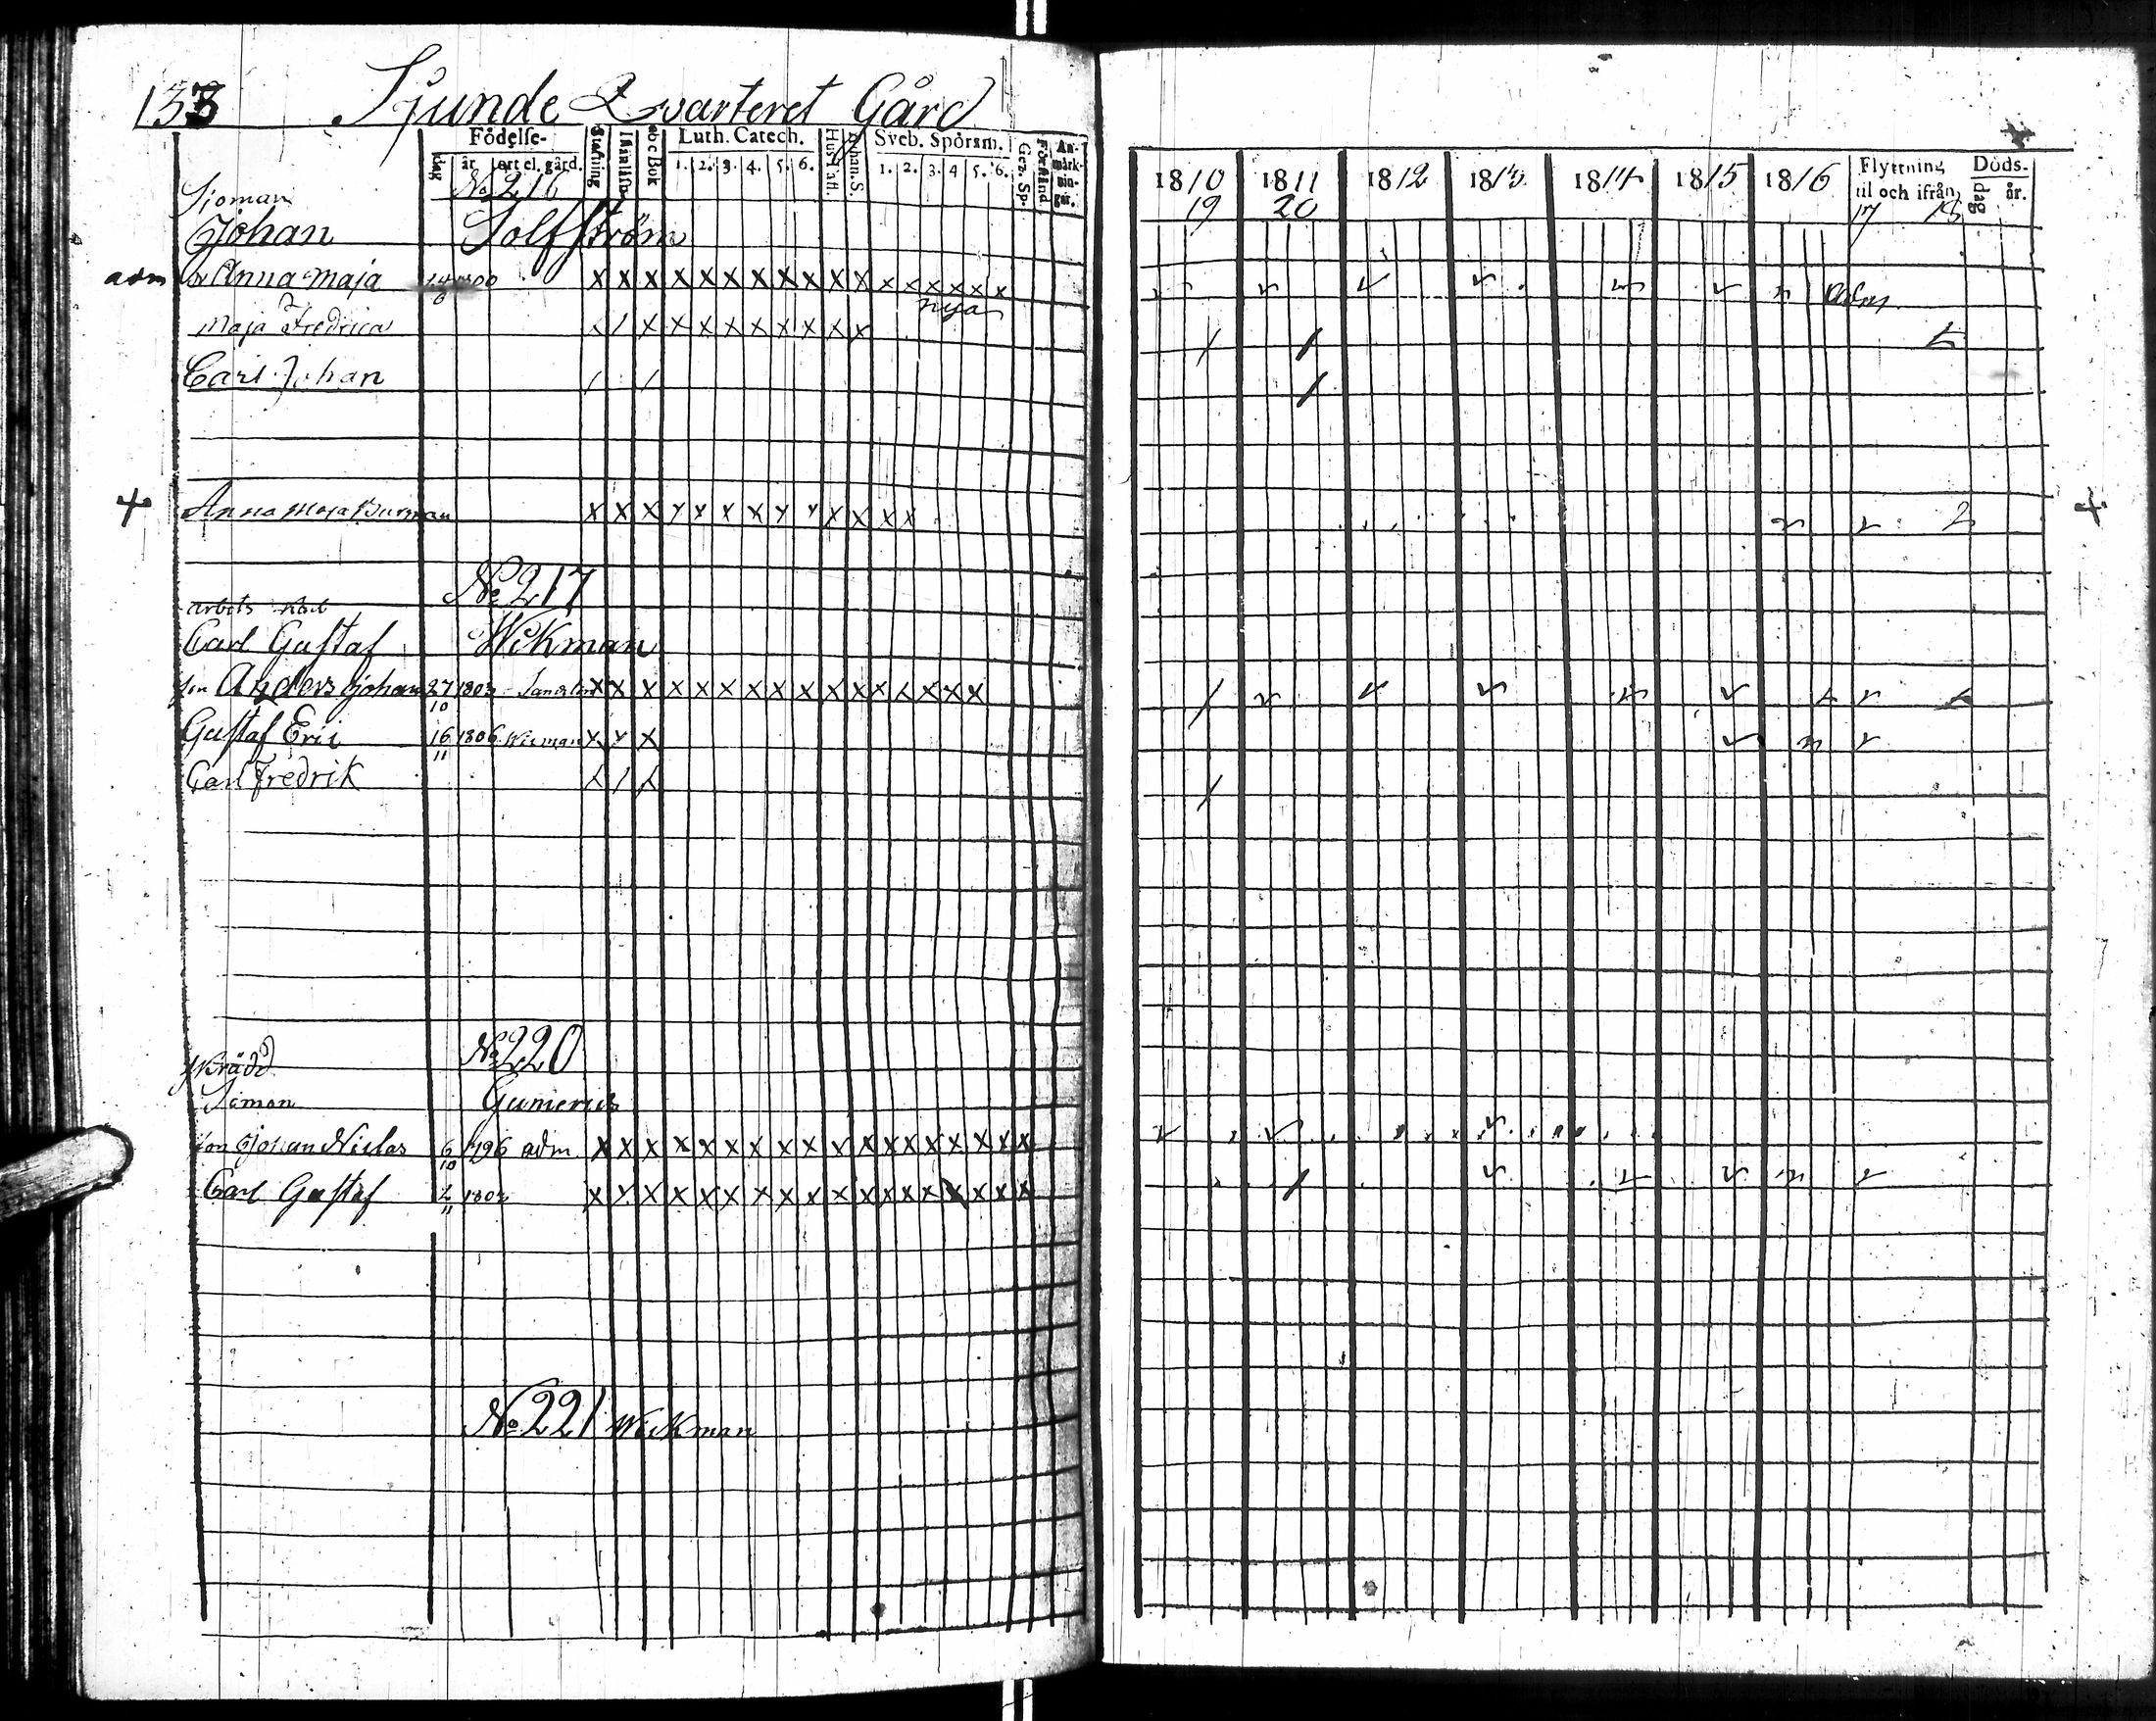 133 Sjunde Qvarteret Gård
Födelse- Stafning Innanläsn abc Bok Luth. Catech. Hus-Tafl. Athan. S. Sveb. Spörsm. Gez. Sp. Förstånd An-märk-nin-gar.
dag år. ort el. gård. 1. 2. 3. 4. 5. 6. 1. 2. 3. 4. 5. 6.
1810 1811 1812 1813 1814 1815 1816 Flyttning til och ifrån Döds-
19 20 17 18 dag år.
Sjöman No 216
Johan Solfström
adm Anna Maja 14 1800 x x x x x x x x x x x x x x x x x adm
nya
Maja Fredrica x / x x x x x x x x x
Carl Johan / /
Anna Maja Burman x x x x x x x x x x x x x
No 217
arbets karl
Carl Gustaf Wikman
son Anders Johan 27/10 1803 x x x x x x x x x x x x x x x x
Gustaf Eric 16/11 1806 Wikman x x x
Carl Fredrik x / x
No 220
Simon Gumerus
son Johan Niclas 6/10 1796 adm. x x x x x x x x x x x x x x x x x x
Carl Gustaf 2/11 1802 x x x x x x x x x x x x x x x x x x
No 221 Wikman